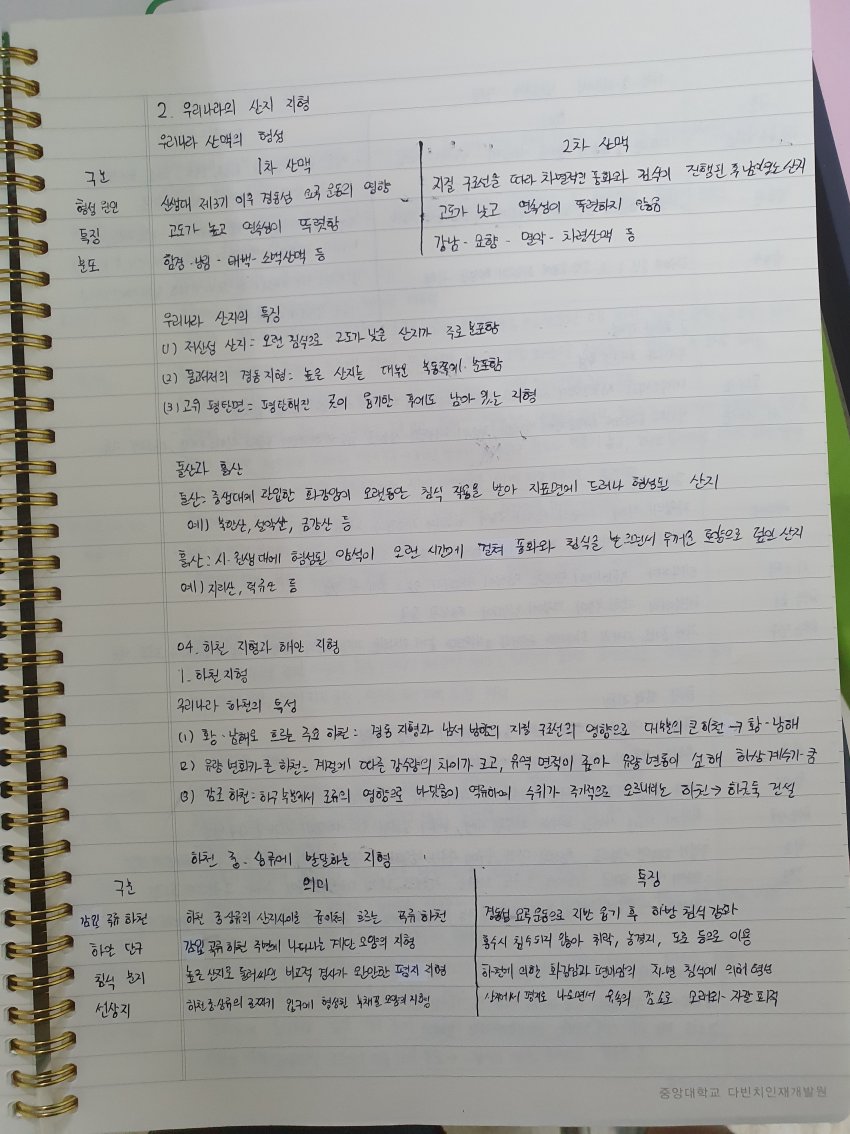 2. 우리나라의 산지 지형
우리나라 산맥의 형성
구분 1차 산맥 2차 산맥
형성 원인 신생대 제3기 이후 경동성 요곡 운동의 영향 지질 구조선을 따라 차별적인 풍화와 침식이 진행된 후 남아있는 산지
특징 고도가 높고 연속성이 뚜렷함 고도가 낮고 연속성이 뚜렷하지 않음
분포 함경-낭림-태백-소백산맥 등 강남-묘향-멸악-차령산맥 등
우리나라 산지의 특징
(1) 저산성 산지: 오랜 침식으로 고도가 낮은 산지가 주로 분포함
(2) 동고서저의 경동 지형: 높은 산지는 대부분 북동쪽에 분포함
(3) 고위 평탄면: 평탄해진 곳이 융기한 후에도 남아 있는 지형
돌산과 흙산
돌산: 중생대에 관입한 화강암이 오랫동안 침식 작용을 받아 지표면에 드러나 형성된 산지
예) 북한산, 설악산, 금강산 등
흙산: 시·원생대에 형성된 암석이 오랜 시간에 걸쳐 풍화와 침식을 받으면서 두꺼운 토양으로 덮인 산지
예) 지리산, 덕유산 등
04. 하천 지형과 해안 지형
1. 하천 지형
우리나라 하천의 특성
(1) 황·남해로 흐르는 주요 하천: 경동 지형과 남서 방향의 지질 구조선의 영향으로 대부분의 큰 하천 → 황·남해
(2) 유량 변화가 큰 하천: 계절에 따른 강수량의 차이가 크고, 유역 면적이 좁아 유량 변동이 심해 하상계수가 큼
(3) 감조 하천: 하구 부분에서 조류의 영향으로 바닷물이 역류하여 수위가 주기적으로 오르내리는 하천 → 하굿둑 건설
하천 중·상류에 발달하는 지형
구분 의미 특징
감입 곡류 하천 하천 중상류의 산지사이를 굽이쳐 흐르는 곡류 하천 경동성 요곡 운동으로 지반 융기 후 하방 침식 강화
하안 단구 감입 곡류 하천 주변에 나타나는 계단 모양의 지형 홍수시 침수되지 않아 취락, 농경지, 도로 등으로 이용
침식 분지 높은 산지로 둘러싸인 비교적 경사가 완만한 평지 지형 하천에 의한 화강암과 편마암의 차별 침식에 의해 형성
선상지 하천 중상류의 골짜기 입구에 형성된 부채꼴 모양의 지형 산지에서 평지로 나오면서 유속의 감소로 모래와 자갈 퇴적
중앙대학교 다빈치인재개발원